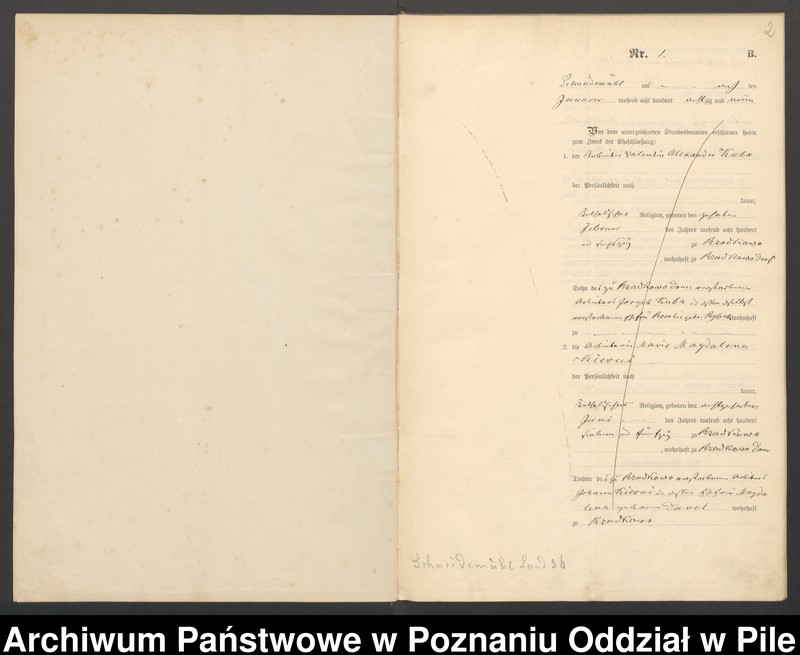 2
Nr. 1. B.
Schneidemühl am acht ten
Januar tausend acht hundert achtzig und neun
Vor dem unterzeichneten Standesbeamten erschienen heute
zum Zweck der Eheschließung:
1. der Arbeiter Valentin Alexander Kuba
der Persönlichkeit nach
kannt,
katholischer Religion, geboren den
Februar des Jahres tausend acht hundert
zu Rzadkowo
, wohnhaft zu Rzadkowo Dorf
Sohn des zu Rzadkowo Dom. verstorbenen
Arbeiters Joseph Kuba
verstorbenen Ehefrau Rosalie geb. wohnhaft
zu
2. die Arbeiterin Marie Magdalena
Kierni
der Persönlichkeit nach
kannt,
katholischer Religion, geboren den
Juni des Jahres tausend acht hundert
sieben und fünfzig zu Rzadkowo
, wohnhaft zu Rzadkowo Dom
Tochter des zu Rzadkowo verstorbenen Arbeiters
Johann Kierni Ehefrau Magda
lena geborene Danel wohnhaft
zu Rzadkowo
Schneidemühl Land 36
Archiwum Państwowe w Poznaniu Oddział w Pile